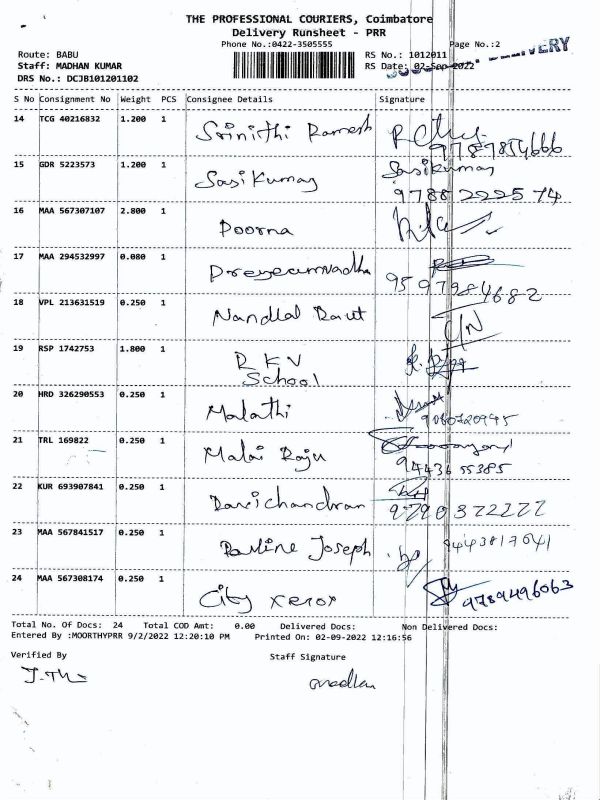 THE PROFESSIONAL COURIERS, Coimbatore
Delivery Runsheet - PRR
Phone No.:0422-3505555
Page No.:2
Route: BABU
RS No.: 1012011
DELIVERY
Staff: MADHAN KUMAR
RS Date: 02-Sep-2022
DRS No.: DCJB101201102
S No Consignment No Weight PCS Consignee Details Signature
14 TCG 40216832 1.200 1 Srinithi Ramesh
9789854666
15 GDR 5223573 1.200 1 Sasikumar Sasikumar
9788 222574
16 MAA 567307107 2.800 1 Poorna
17 MAA 294532997 0.080 1
9597984682
18 VPL 213631519 0.250 1 Nandlal Raut
19 RSP 1742753 1.800 1 R K V
School
20 HRD 326290553 0.250 1 Malathi
21 TRL 169822 0.250 1 Malai Raju
9443655385
22 KUR 693907841 0.250 1 Ravichandran
23 MAA 567841517 0.250 1 Pauline Joseph
24 MAA 567308174 0.250 1 City xerox 9789496063
Total No. Of Docs: 24 Total COD Amt: 0.00 Delivered Docs: Non Delivered Docs:
Entered By :MOORTHYPRR 9/2/2022 12:20:10 PM Printed On: 02-09-2022 12:16:56
Verified By Staff Signature